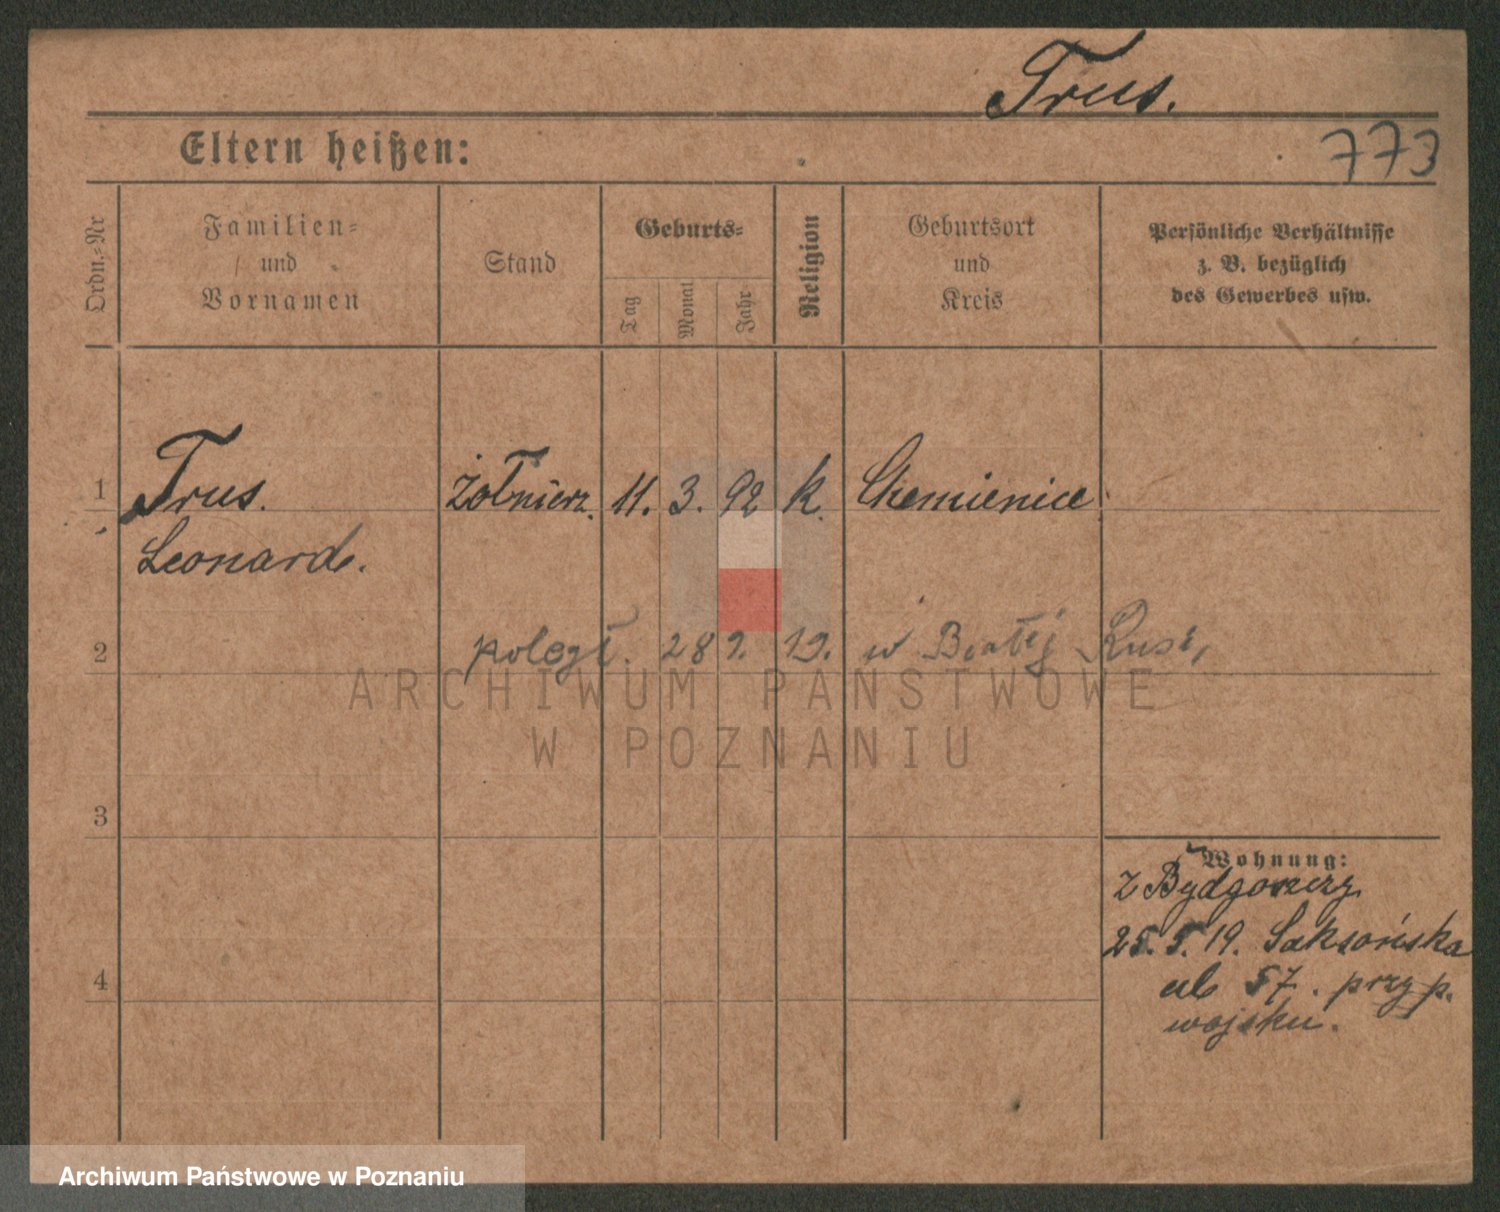 Trus.
Eltern heißen:
773
Ordn.-Nr
Familien-
und
Vornamen
Stand
Geburts-
Tag
Monat
Jahr
Religion
Geburtsort
und
Kreis
Persönliche Verhältnisse
z. B. bezüglich
des Gewerbes usw.
1 Trus. żołnierz. 11. 3. 92 k. Chemienice
Leonard.
2 poległ. 28 9. 19. w Białej Rusi,
ARCHIWUM PAŃSTWOWE
W POZNANIU
3
Wohnung:
z Bydgoszczy
25.5.19. Saksońska
4
ul 57. przy p.
wojsku.
Archiwum Państwowe w Poznaniu